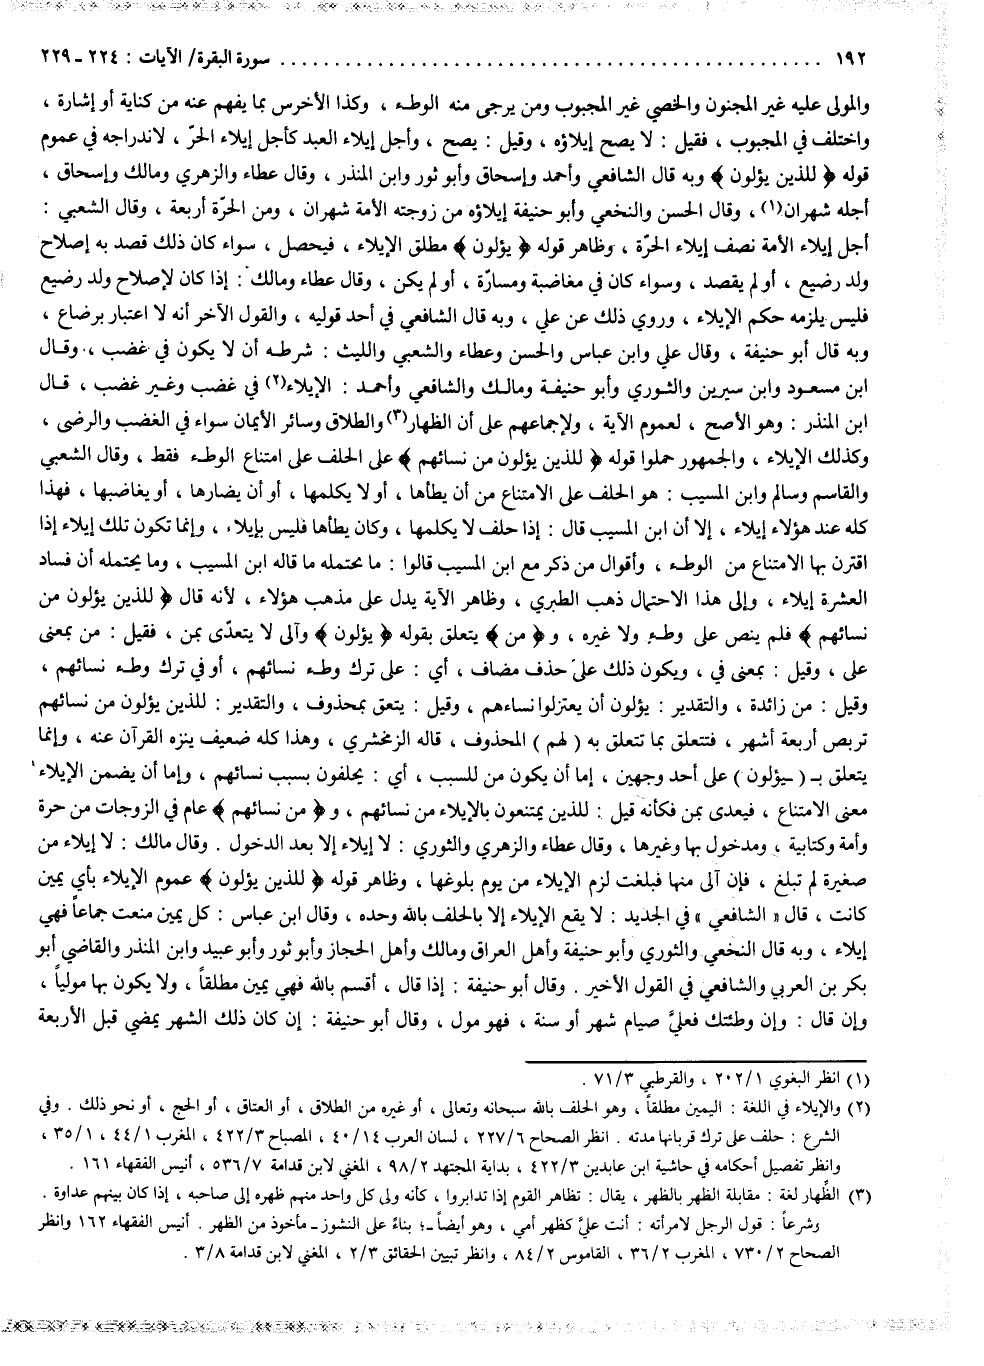 ١٩٢ . . . . . . . . . . . . . . . . . . . . . . . . . . . . . . . . . . . . . . . . . . . . . . . . . . سورة البقرة/ الآيات : ٢٢٤ ـ ٢٢٩
والمولى عليه غير المجنون والخصي غير المجبوب ومن يرجى منه الوطء ، وكذا الأخرس بما يفهم عنه من كناية أو إشارة ،
واختلف في المجبوب ، فقيل : لا يصح إيلاؤه ، وقيل : يصح ، وأجل إيلاء العبد كأجل إيلاء الحرّ ، لاندراجه في عموم
قوله ﴿ للذين يؤلون ﴾ وبه قال الشافعي وأحمد وإسحاق وأبو ثور وابن المنذر ، وقال عطاء والزهري ومالك وإسحاق ،
أجله شهران(١) ، وقال الحسن والنخعي وأبو حنيفة إيلاؤه من زوجته الأمة شهران ، ومن الحرّة أربعة ، وقال الشعبي :
أجل إيلاء الأمة نصف إيلاء الحرّة ، وظاهر قوله ﴿ يؤلون ﴾ مطلق الإيلاء ، فيحصل ، سواء كان ذلك قصد به إصلاح
ولد رضيع ، أو لم يقصد ، وسواء كان في مغاضبة ومسارّة ، أو لم يكن ، وقال عطاء ومالك : إذا كان لإصلاح ولد رضيع
فليس يلزمه حكم الإيلاء ، وروي ذلك عن علي ، وبه قال الشافعي في أحد قوليه ، والقول الآخر أنه لا اعتبار برضاع ،
وبه قال أبو حنيفة ، وقال علي وابن عباس والحسن وعطاء والشعبي والليث : شرطه أن لا يكون في غضب ، وقال
ابن مسعود وابن سيرين والثوري وأبو حنيفة ومالك والشافعي وأحمد : الإيلاء(٢) في غضب وغير غضب ، قال
ابن المنذر : وهو الأصح ، لعموم الآية ، ولإجماعهم على أن الظهار(٣) والطلاق وسائر الأيمان سواء في الغضب والرضى ،
وكذلك الإيلاء ، والجمهور حملوا قوله ﴿ للذين يؤلون من نسائهم ﴾ على الحلف على امتناع الوطء فقط ، وقال الشعبي
والقاسم وسالم وابن المسيب : هو الحلف على الامتناع من أن يطأها ، أو لا يكلمها ، أو أن يضارها ، أو يغاضبها ، فهذا
كله عند هؤلاء إيلاء ، إلا أن ابن المسيب قال : إذا حلف لا يكلمها ، وكان يطأها فليس بإيلاء ، وإنما تكون تلك إيلاء إذا
اقترن بها الامتناع من الوطء ، وأقوال من ذكر مع ابن المسيب قالوا : ما يحتمله ما قاله ابن المسيب ، وما يحتمله أن فساد
العشرة إيلاء ، وإلى هذا الاحتمال ذهب الطبري ، وظاهر الآية يدل على مذهب هؤلاء ، لأنه قال ﴿ للذين يؤلون من
نسائهم ﴾ فلم ينص على وطءٍ ولا غيره ، و ﴿ من ﴾ يتعلق بقوله ﴿ يؤلون ﴾ وآلى لا يتعدّى بمن ، فقيل : من بمعنى
على ، وقيل : بمعنى في ، ويكون ذلك على حذف مضاف ، أي : على ترك وطء نسائهم ، أو في ترك وطء نسائهم ،
وقيل : من زائدة ، والتقدير : يؤلون أن يعتزلوا نساءهم ، وقيل : يتعق بمحذوف ، والتقدير : للذين يؤلون من نسائهم
تربص أربعة أشهر ، فتتعلق بما تتعلق به ( لهم ) المحذوف ، قاله الزمخشري ، وهذا كله ضعيف ينزه القرآن عنه ، وإنما
يتعلق بـ ( ـيؤلون ) على أحد وجهين ، إما أن يكون من للسبب ، أي : يحلفون بسبب نسائهم ، وإما أن يضمن الإيلاء
معنى الامتناع ، فيعدى بمن فكأنه قيل : للذين يمتنعون بالإيلاء من نسائهم ، و ﴿ من نسائهم ﴾ عام في الزوجات من حرة
وأمة وكتابية ، ومدخول بها وغيرها ، وقال عطاء والزهري والثوري : لا إيلاء إلا بعد الدخول . وقال مالك : لا إيلاء من
صغيرة لم تبلغ ، فإن آلى منها فبلغت لزم الإيلاء من يوم بلوغها ، وظاهر قوله ﴿ للذين يؤلون ﴾ عموم الإيلاء بأي يمين
كانت ، قال « الشافعي » في الجديد : لا يقع الإيلاء إلا بالحلف بالله وحده ، وقال ابن عباس : كل يمين منعت جماعاً فهي
إيلاء ، وبه قال النخعي والثوري وأبو حنيفة وأهل العراق ومالك وأهل الحجاز وأبو ثور وأبو عبيد وابن المنذر والقاضي أبو
بكر بن العربي والشافعي في القول الأخير . وقال أبو حنيفة : إذا قال ، أقسم بالله فهي يمين مطلقاً ، ولا يكون بها مولياً ،
وإن قال : وإن وطئتك فعليَّ صيام شهر أو سنة ، فهو مول ، وقال أبو حنيفة : إن كان ذلك الشهر يمضي قبل الأربعة
(١) انظر البغوي ٢٠٢/١ ، والقرطبي ٧١/٣ .
(٢) والإيلاء في اللغة : اليمين مطلقاً ، وهو الحلف بالله سبحانه وتعالى ، أو غيره من الطلاق ، أو العتاق ، أو الحج ، أو نحو ذلك . وفي
الشرع : حلف على ترك قربانها مدته . انظر الصحاح ٢٢٧/٦ ، لسان العرب ٤٠/١٤ ، المصباح ٤٢٢/٣ ، المغرب ٤٤/١ ، ٣٥/١ ،
وانظر تفصيل أحكامه في حاشية ابن عابدين ٤٢٢/٣ ، بداية المجتهد ٩٨/٢ ، المغني لابن قدامة ٥٣٦/٧ ، أنيس الفقهاء ١٦١ .
(٣) الظِّهار لغة : مقابلة الظهر بالظهر ، يقال : تظاهر القوم إذا تدابروا ، كأنه ولى كل واحد منهم ظهره إلى صاحبه ، إذا كان بينهم عداوة .
وشرعاً : قول الرجل لامرأته : أنت عليَّ كظهر أمي ، وهو أيضاً ـ؛ بناءً على النشوز ـ مأخوذ من الظهر . أنيس الفقهاء ١٦٢ وانظر
الصحاح ٧٣٠/٢ ، المغرب ٣٦/٢ ، القاموس ٨٤/٢ ، وانظر تبيين الحقائق ٢/٣ ، المغني لابن قدامة ٣/٨ .